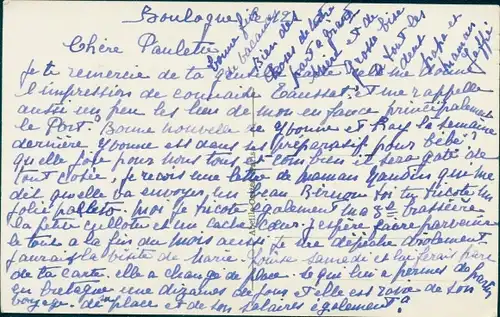 Boulogne le
Chère Paulette
Je te remercie de ta carte elle me donne
l'impression de connaitre et me rappelle
aussi un peu les lieux de mon enfance principalement
le Port. Bonne nouvelle de Yvonne et Ray la semaine
dernière. Yvonne est dans les préparatifs pour Bébé
quelle joie pour nous tous et combien il sera gaté de
tout coté. Je reçois une lettre de maman qui me
dit qu'elle va envoyer un beau toi tu tricote un
joli paletot moi je tricote également ma 3e brassière
la petite culotte et un cache cœur. J'espère faire parvenir
le tout a la fin du mois aussi je me dépêche drolement
J'aurais la visite de Marie Louise Samedi et lui ferais part
de ta carte. elle a changé de place. ce qui lui a permis de partir
en bretagne une dizaines de jour et elle est ravie de son
voyage. de place et de son salaires également.
Bonne fin
de vacances
Bien des
choses de notre
part a
et de
Grosse bise
a tout les
deux
papa et
maman